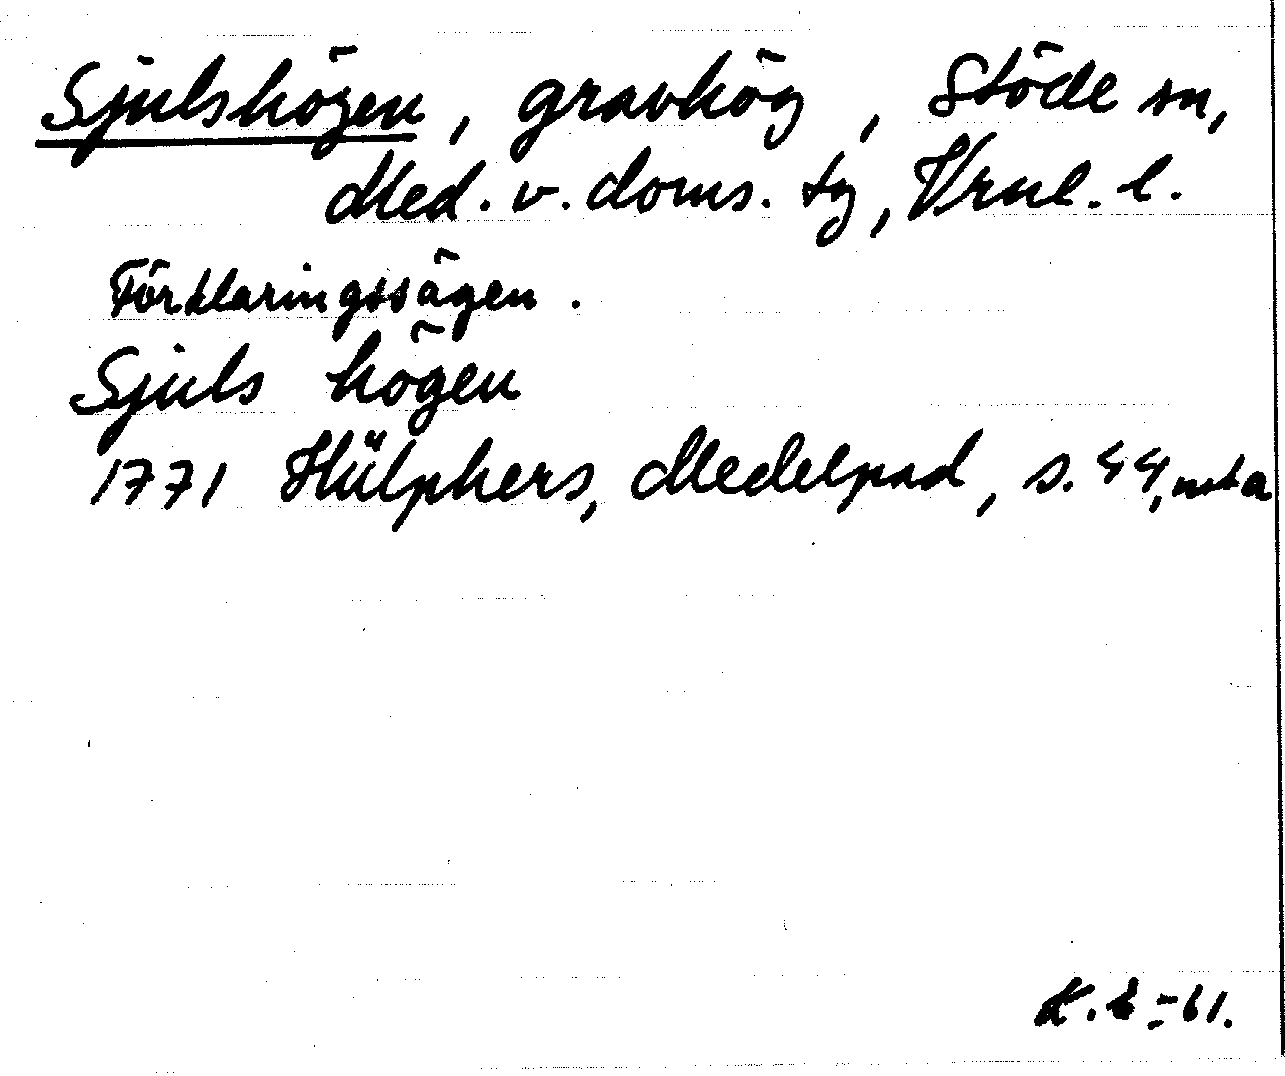 Sjulshögen, gravhög, Stöde sn,
Med. v. doms. tg, Vrnl. l.
Förklaringssägen.
Sjuls högen
1771 Hülphers, Medelpad, s. 44, not a
-61.